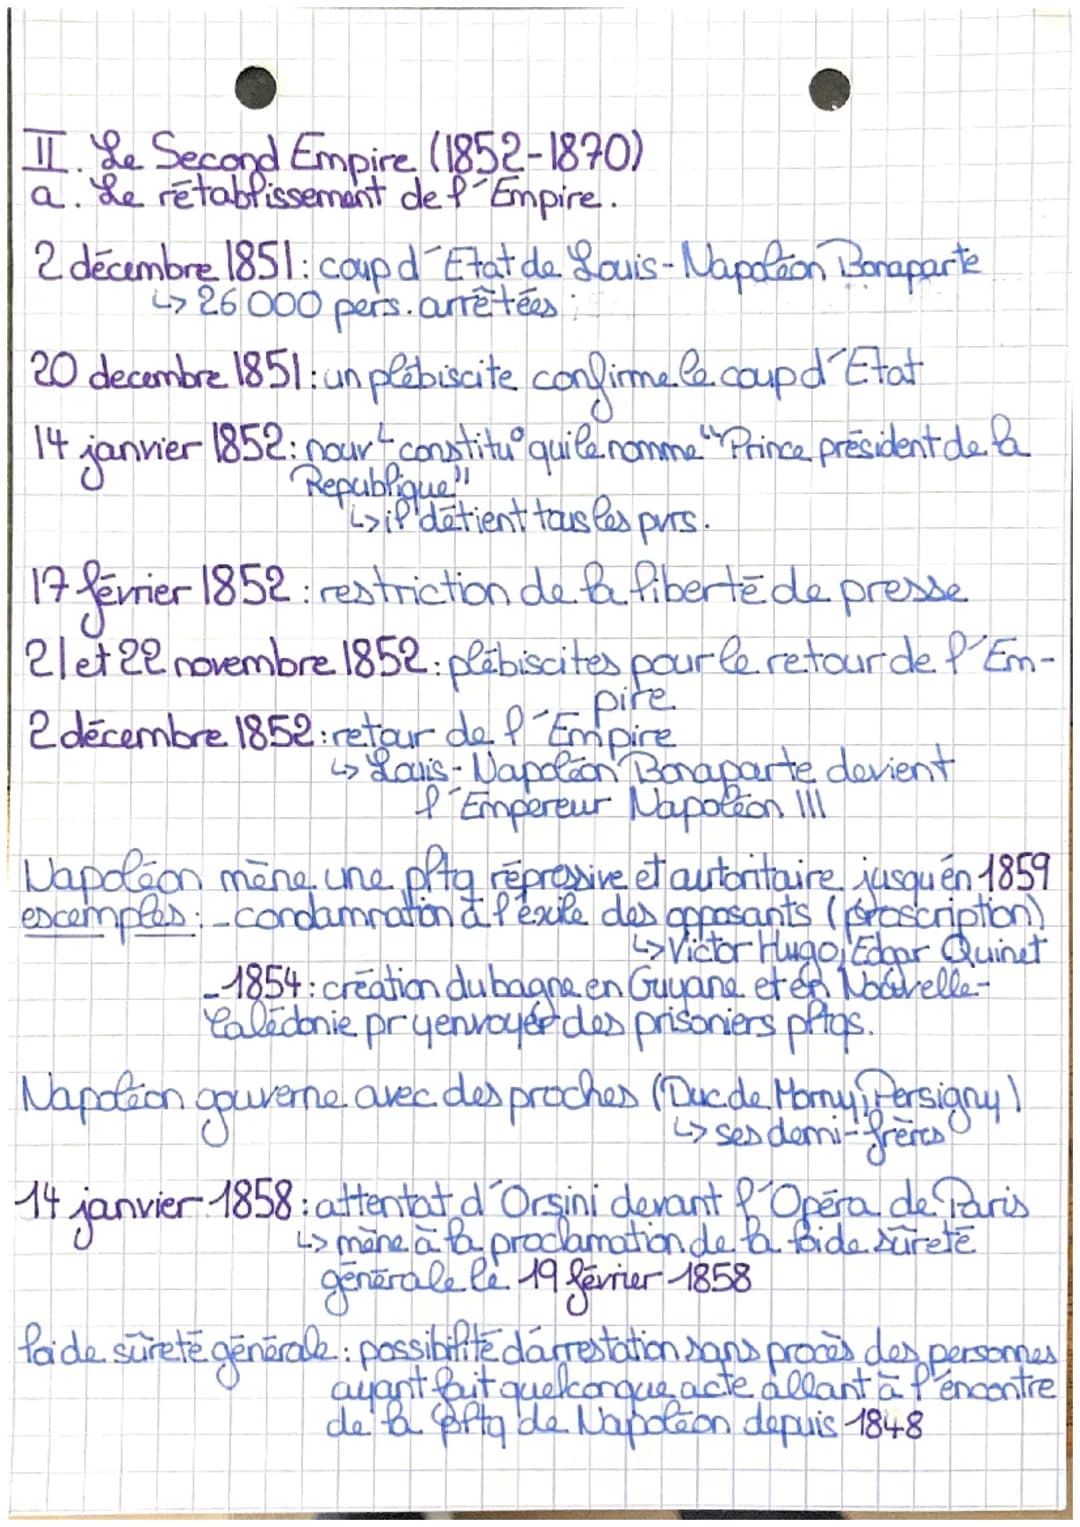 II. Le Second Empire (1852-1870)
a. Le rétablissement de l'Empire.
2 décembre 1851: coup d'Etat de Louis-Napoléon Bonaparte
↳ 26 000 pers. arrêtées
20 decembre 1851: un plébiscite confirme le coup d'Etat
14 janvier 1852: nouv^t constitu° qui le nomme "Prince président de la
Republique"
↳ il détient tous les pvrs.
17 février 1852: restriction de la liberté de presse
21 et 22 novembre 1852: plébiscites pour le retour de l'Em-
pire
2 décembre 1852: retour de l'Empire
↳ Louis-Napoléon Bonaparte devient
l'Empereur Napoléon III
Napoléon mène une pltq répressive et autoritaire jusqu'en 1859
exemples: - condamnation à l'exile des opposants (proscription)
↳ Victor Hugo, Edgar Quinet
- 1854: création du bagne en Guyane et en Nouvelle-
Calédonie pr y envoyer des prisoniers pltqs.
Napoléon gouverne avec des proches (Duc de Morny, Persigny)
↳ ses demi-frères
14 janvier 1858: attentat d'Orsini devant l'Opéra de Paris
↳ mène à la proclamation de la loi de sûreté
générale le 19 février 1858
loi de sûreté générale: possibilité d'arrestation sans procès des personnes
ayant fait quelconque acte allant à l'encontre
de la pltq de Napoléon depuis 1848